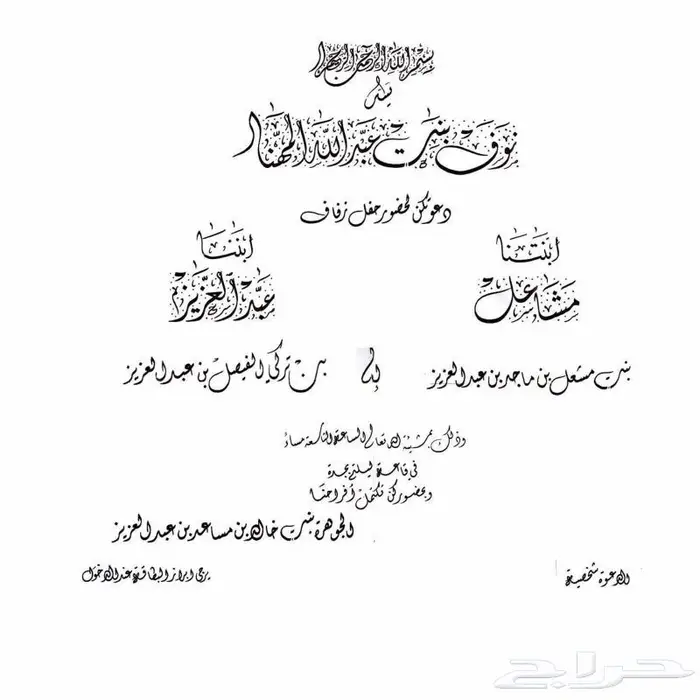 بسم الله الرحمن الرحيم
يسر
نوف بنت عبدالله المهنا
دعوتكن لحضور حفل زفاف
ابنتنا ابننا
مشاعل عبدالعزيز
بنت مشعل بن ماجد بن عبدالعزيز إلى بن تركي الفيصل بن عبدالعزيز
وذلك بمشيئة الله تعالى الساعة التاسعة مساءً
في قاعة ليلتي بجدة
وبحضوركن تكتمل أفراحنا
الجوهرة بنت خالد بن مساعد بن عبدالعزيز
الدعوة شخصية يرجى ابراز البطاقة عند الدخول
حراج